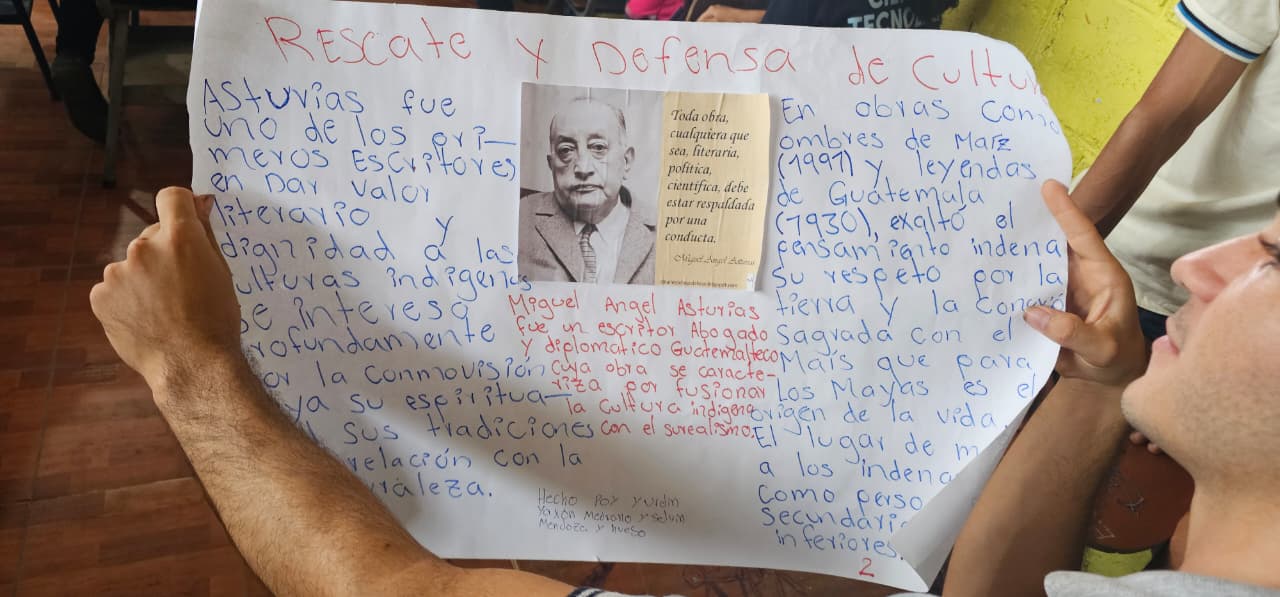 TECNO
Rescate y Defensa de Cultu
Asturias fue
uno de los pri—
meros Escritores
en Dar valor
literario y
dignidad a las
ulturas indigenas
se interesa
rofundamente
or la Conmovisión
ya su espiritua—
sus tradiciones
relación con la
uraleza.
Toda obra,
cualquiera que
sea, literaria,
política,
científica, debe
estar respaldada
por una
conducta.
Miguel Angel Asturias
Miguel Angel Asturias
fue un escritor Abogado
y diplomatico Guatemalteco
cuya obra se caracte—
riza por fusionar
la cultura indigena
con el surealismo.
Hecho por yurem
Yaxón Medrano y selvin
Mendoza y hueso
En obras Como
ombres de Maiz
(1991) y leyendas
de Guatemala
(1930), exaltó el
pensamiento indena
su respeto por la
tierra y la conexió
Sagrada con el
Mais que para
Los Mayas es el
origen de la vida
El lugar de m
a los indena
Como perso
Secundario
inferiores.
2